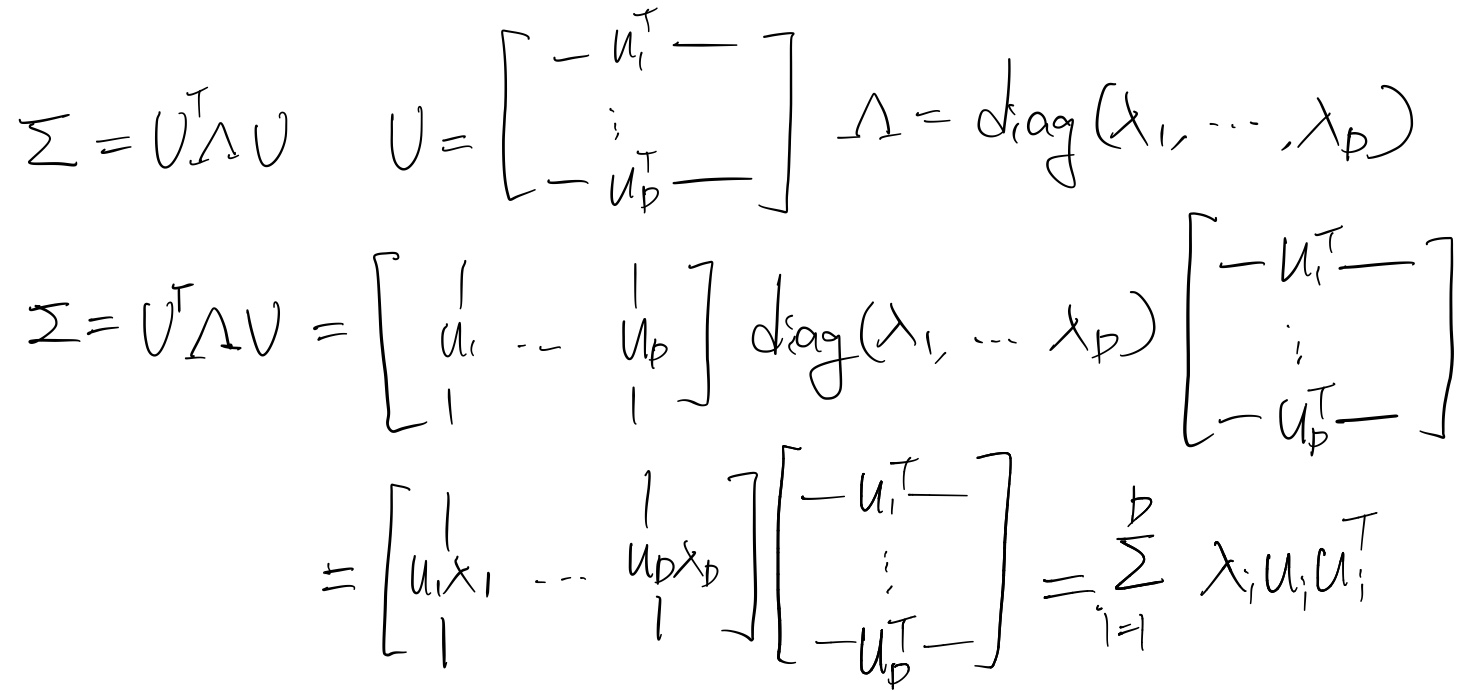 Σ = UᵀΛU U = [ — u₁ᵀ — ⋮ — u_Dᵀ — ] Λ = diag(λ₁, ⋯, λ_D)
Σ = UᵀΛU = [ | u₁ | ⋯ | u_D | ] diag(λ₁, ⋯ λ_D) [ — u₁ᵀ — ⋮ — u_Dᵀ — ]
= [ | u₁λ₁ | ⋯ | u_Dλ_D | ] [ — u₁ᵀ — ⋮ — u_Dᵀ — ] = ∑_{i=1}^{D} λᵢuᵢuᵢᵀ